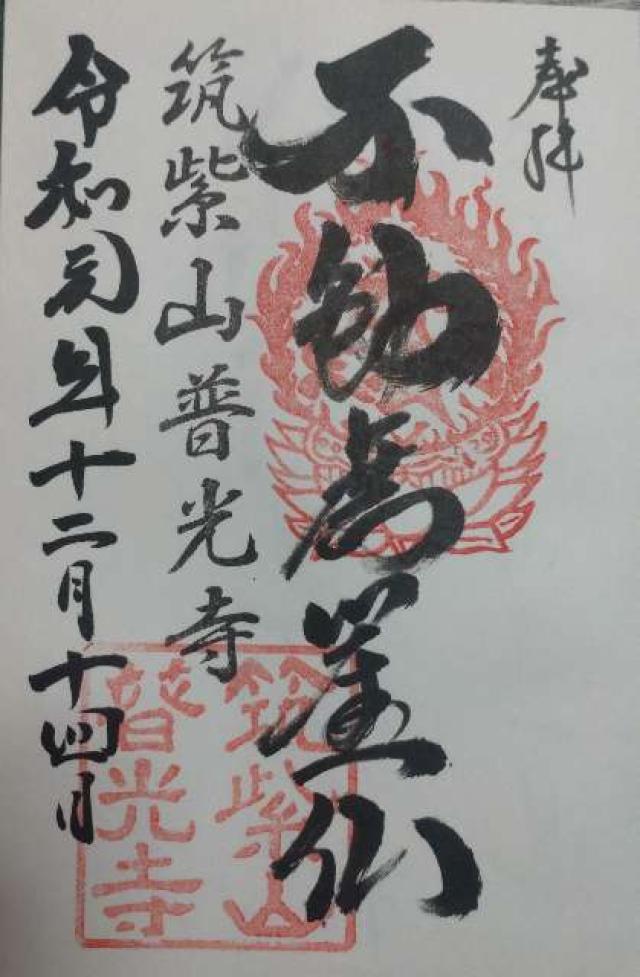 奉拝
不動磨崖仏
筑紫山普光寺
令和元年十二月十四日
筑紫山
普光寺